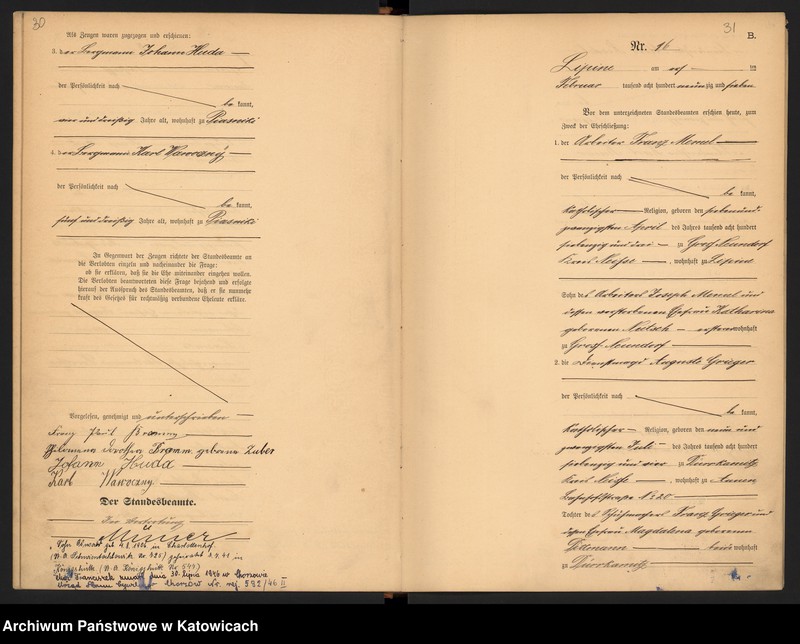 30
Als Zeugen waren zugezogen und erschienen:
3. der Bergmann Johann Huda
der Persönlichkeit nach
be kannt,
vier und dreißig Jahre alt, wohnhaft zu Piasniki
4. der Bergmann Karl Wawoczny
der Persönlichkeit nach
be kannt,
fünf und dreißig Jahre alt, wohnhaft zu Piasniki
In Gegenwart der Zeugen richtete der Standesbeamte an
die Verlobten einzeln und nacheinander die Frage:
ob sie erklären, daß sie die Ehe miteinander eingehen wollen.
Die Verlobten beantworteten diese Frage bejahend und erfolgte
hierauf der Ausspruch des Standesbeamten, daß er sie nunmehr
kraft des Gesetzes für rechtmäßig verbundene Eheleute erkläre.
Vorgelesen, genehmigt und unterschrieben
Franz Paul
geborene Zuber
Johann Huda
Karl Wawoczny
Der Standesbeamte.
In Vertretung
in
Königshütte (St. A. Königshütte Nr
Franciszek zmarł dnia 30. lipca 1946 w Chorzowie
Chorzów Nr. rej. 592/46 II
31
B.
Nr. 16
Lipine am elf ten
Februar tausend acht hundert neunzig und sieben
Vor dem unterzeichneten Standesbeamten erschien heute, zum
Zweck der Eheschließung:
1. der Arbeiter Franz Menzel
der Persönlichkeit nach
be kannt,
katholischer Religion, geboren den siebenund-
zwanzigsten April des Jahres tausend acht hundert
siebenzig und drei zu Groß Neundorf
Kreis Neisse, wohnhaft zu Lipine
Sohn des Arbeiters Joseph Menzel und
dessen verstorbenen Ehefrau Katharina
geborenen Nitsch ersterer wohnhaft
zu Groß Neundorf
2. die Dienstmagd Auguste Grieger
der Persönlichkeit nach
be kannt,
katholischer Religion, geboren den neun und
zwanzigsten Juli des Jahres tausend acht hundert
siebenzig und vier zu Dürrkamitz
Kreis Neisse, wohnhaft zu
Bahnhofstraße No 20
Tochter des Franz Grieger und
dessen Ehefrau Magdalena geborenen
beide wohnhaft
zu Dürrkamitz
Archiwum Państwowe w Katowicach